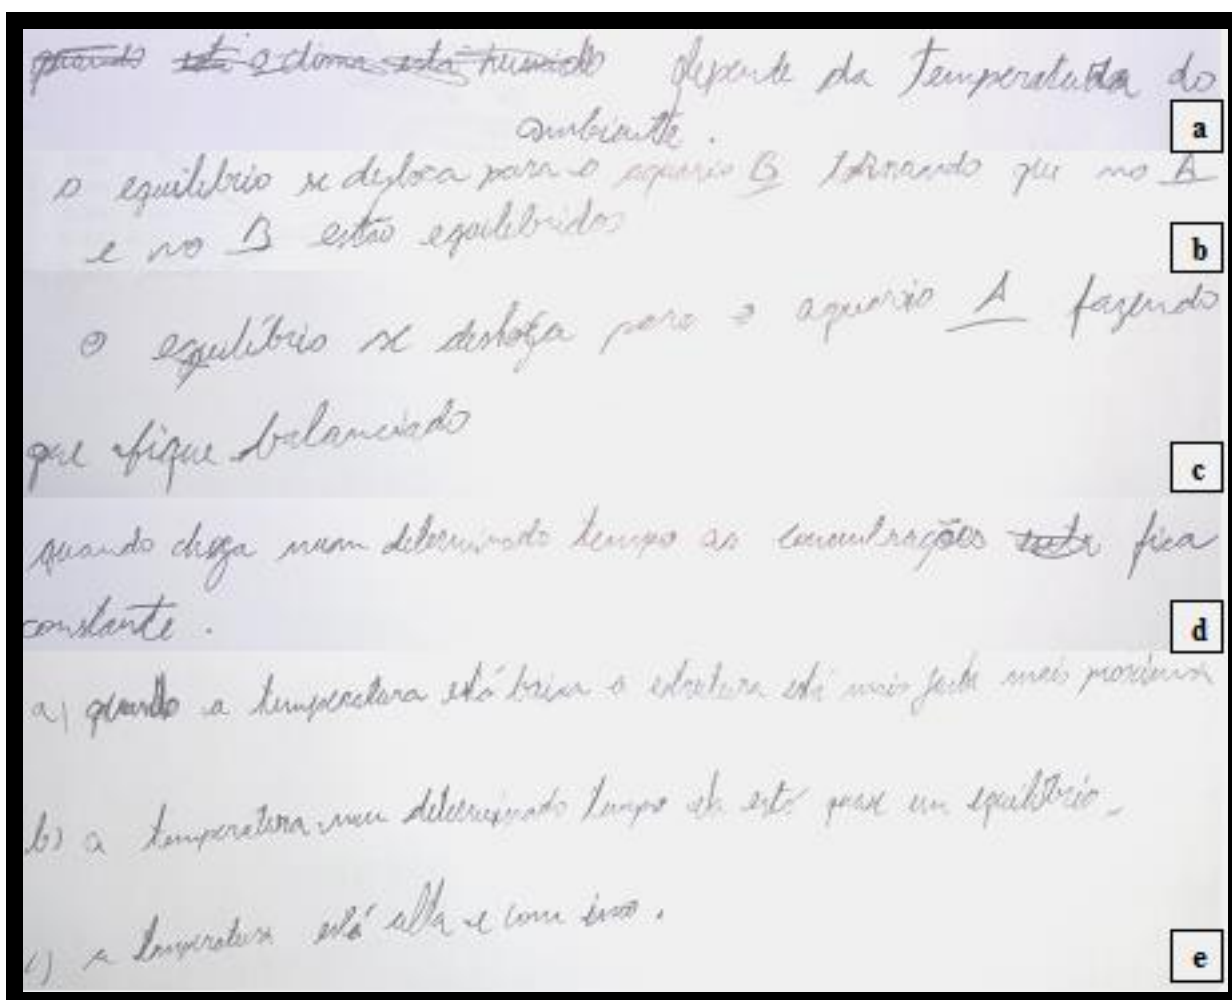 quando está o clima está humido depende da Temperatura do
ambiente.
a
o equilibrio se desloca para o aquario B tornando que no A
e no B estão equilibridos
b
o equilíbrio se desloca para o aquario A fazendo
que fique balanciado
c
quando chega num determinado tempo as concentrações fica
constante.
d
a) quando a temperatura está baixa a estrutura está mais junta mais
b) a temperatura num determinado tempo ela está quase em equilíbrio.
c) a temperatura está alta e com isso.
e